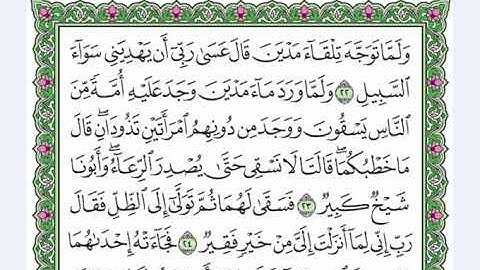 وَلَمَّا تَوَجَّهَ تِلْقَآءَ مَدْيَنَ قَالَ عَسَىٰ رَبِّىٓ أَن يَهْدِيَنِى سَوَآءَ
ٱلسَّبِيلِ ٢٢ وَلَمَّا وَرَدَ مَآءَ مَدْيَنَ وَجَدَ عَلَيْهِ أُمَّةً مِّنَ
ٱلنَّاسِ يَسْقُونَ وَوَجَدَ مِن دُونِهِمُ ٱمْرَأَتَيْنِ تَذُودَانِۖ قَالَ
مَا خَطْبُكُمَاۖ قَالَتَا لَا نَسْقِى حَتَّىٰ يُصْدِرَ ٱلرِّعَآءُۖ وَأَبُونَا
شَيْخٌ كَبِيرٌ ٢٣ فَسَقَىٰ لَهُمَا ثُمَّ تَوَلَّىٰٓ إِلَى ٱلظِّلِّ فَقَالَ
رَبِّ إِنِّى لِمَآ أَنزَلْتَ إِلَىَّ مِنْ خَيْرٍ فَقِيرٌ ٢٤ فَجَآءَتْهُ إِحْدَىٰهُمَا